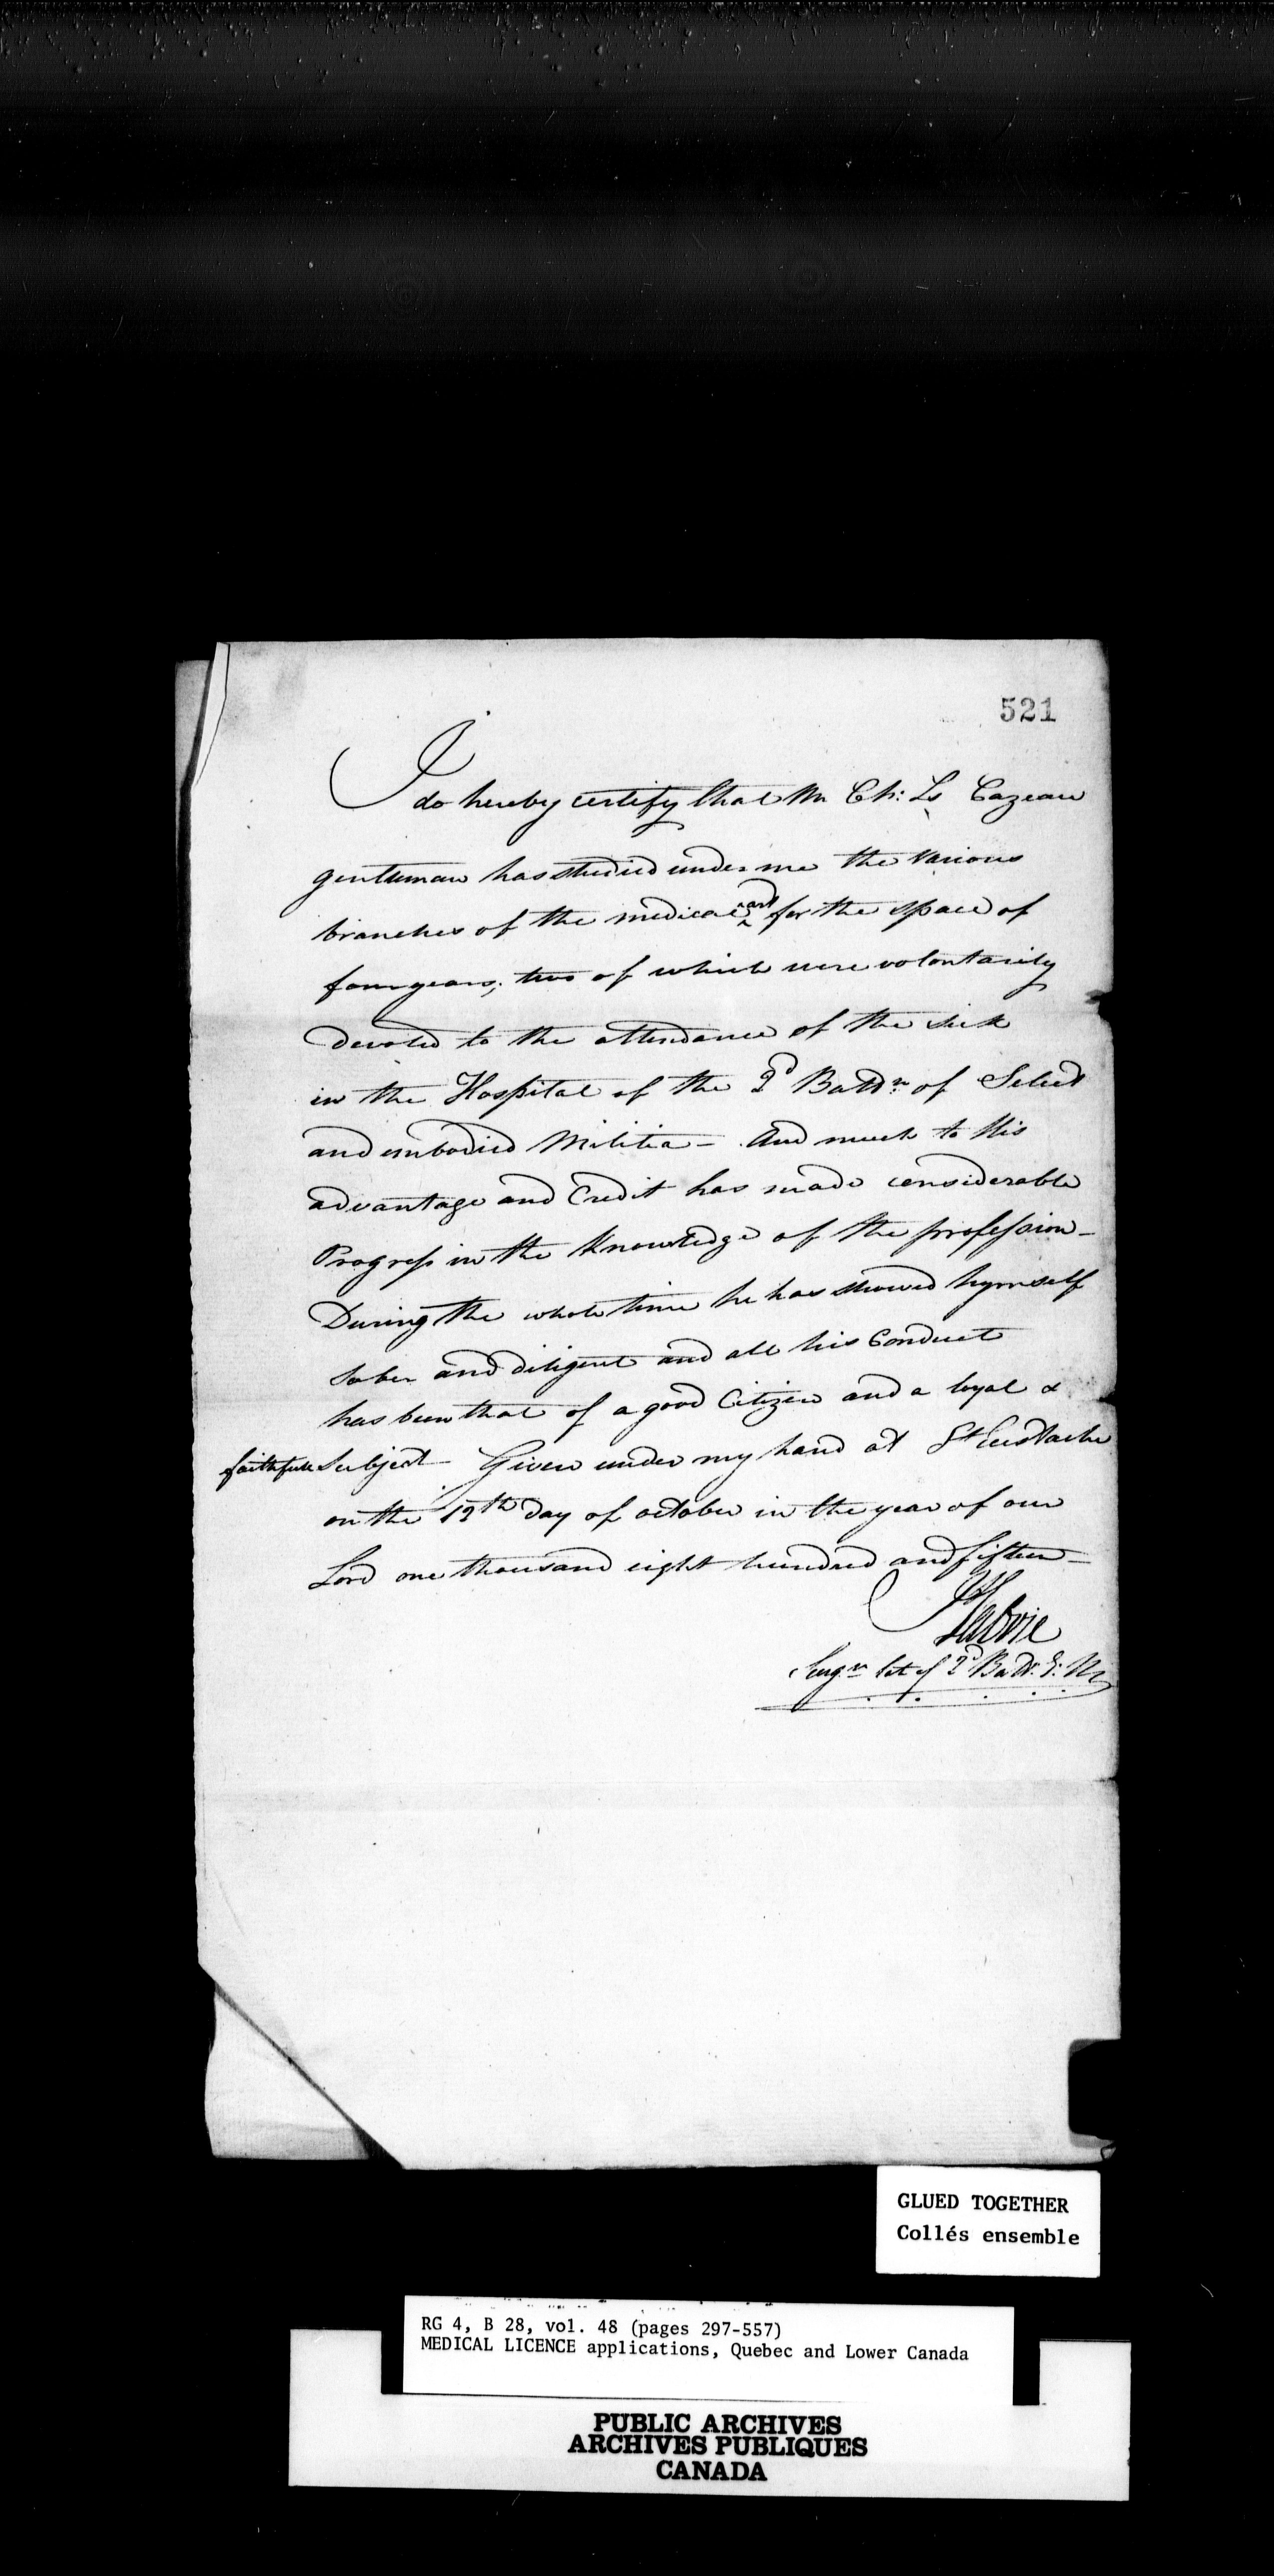 521
I do hereby certify that Mr Ch: Ls Cazeau
gentleman has studied under me the various
branches of the medical art for the space of
four years, two of which were volontarily
devoted to the attendance of the sick
in the Hospital of the 2d Battn. of Select
and embodied Militia - And much to His
advantage and Credit has made considerable
Progress in the Knowledge of the profession -
During the whole time he has showed hymself
sober and diligent and all his Conduct
has been that of a good Citizen and a loyal &
faithfull Subject - Given under my hand at St Eustache
on the 12th day of october in the year of our
Lord one thousand eight hundred and fifteen -
Labrie
Surgn late of 2d Battn. E: M
GLUED TOGETHER
Collés ensemble
RG 4, B 28, vol. 48 (pages 297-557)
MEDICAL LICENCE applications, Quebec and Lower Canada
PUBLIC ARCHIVES
ARCHIVES PUBLIQUES
CANADA